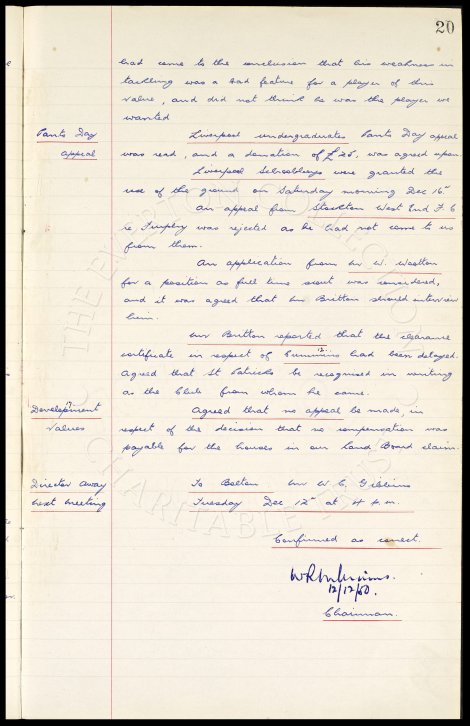 20
had come to the conclusion that his weakness in
tackling was a sad feature for a player of this
value, and did not think he was the player we
wanted
Pants Day Liverpool undergraduates Pants Day appeal
appeal was read, and a donation of £25, was agreed upon.
Liverpool Schoolboys were granted the
use of the ground on Saturday morning Dec 16"
An appeal from Stockton West End F. C
re, was rejected as he had not come to us
from them.
An application from Mr W. Wootton
for a position as full time scout was considered,
and it was agreed that Mr Britton should interview
him.
Mr Britton reported that the clearance
certificate in respect of Cummins had been delayed.
Agreed that St Patricks be recognised in writing
as the Club from whom he came.
Development Agreed that no appeal be made, in
Values respect of the decision that no compensation was
payable for the houses in our Land Board claim.
Director away To Bolton Mr W. C. Gibbins
next meeting Tuesday Dec 12" at 4 p.m.
Confirmed as correct.
12/12/50.
Chairman.
THE EVERTON COLLECTION
CHARITABLE TRUST